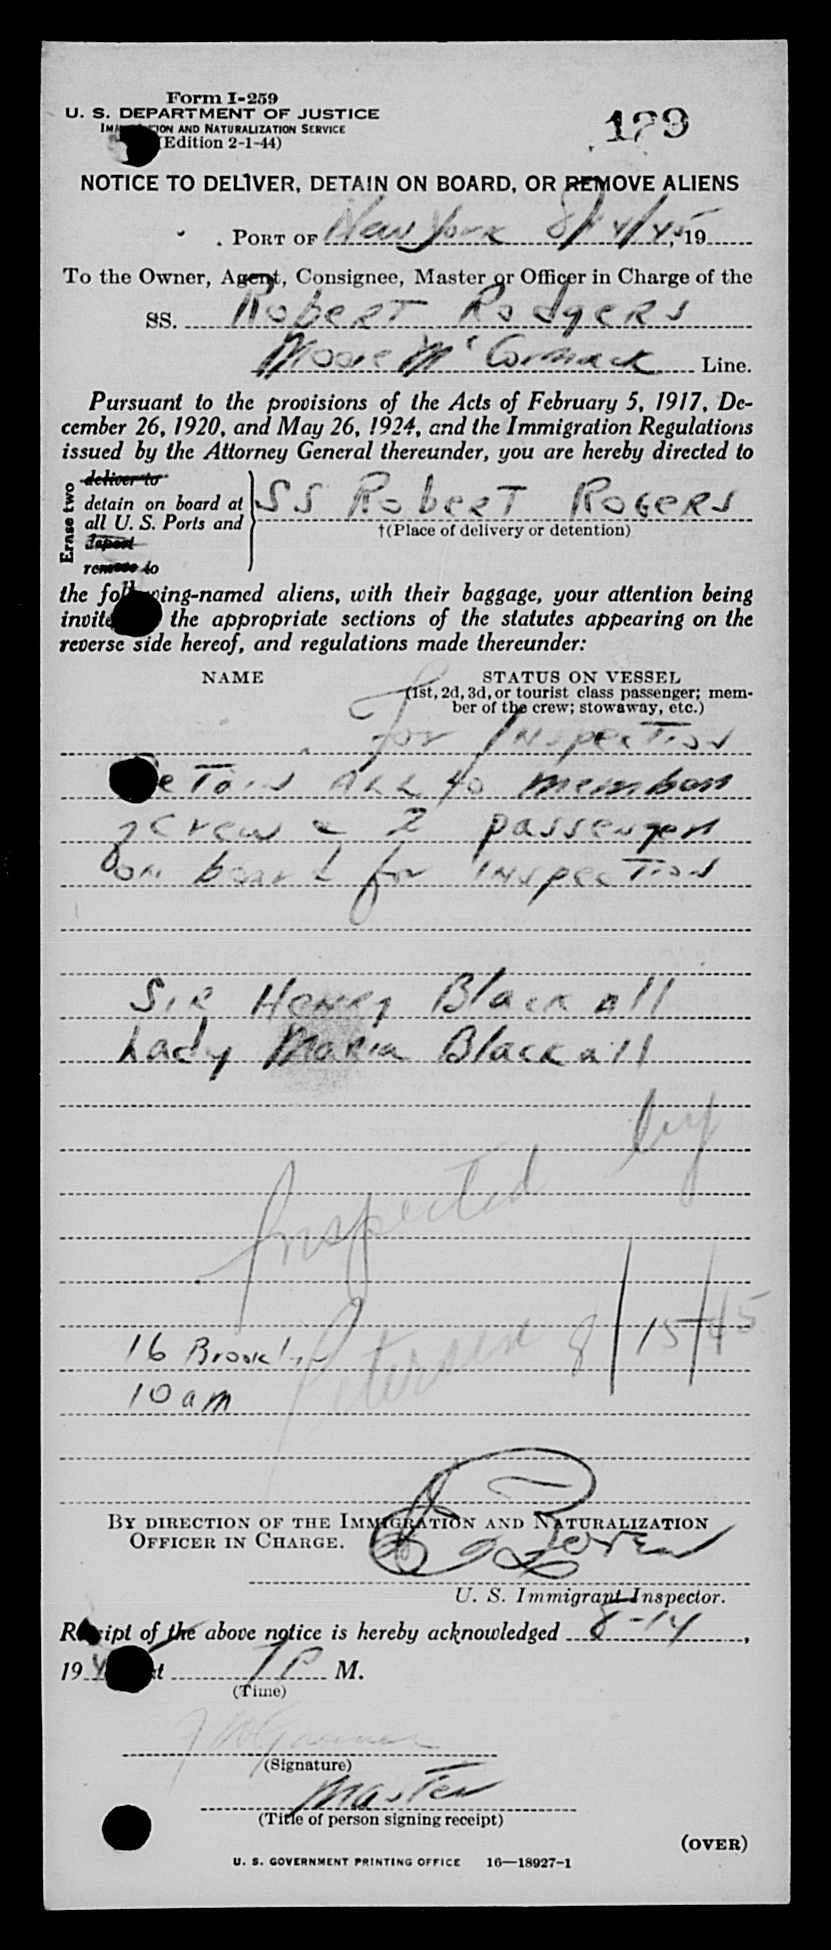 Form I-259
U. S. DEPARTMENT OF JUSTICE
IMMIGRATION AND NATURALIZATION SERVICE
(Edition 2-1-44)
129
NOTICE TO DELIVER, DETAIN ON BOARD, OR REMOVE ALIENS
PORT OF New York 8/14/45, 19
To the Owner, Agent, Consignee, Master or Officer in Charge of the
SS. Robert Rodgers
Moore McCormack Line.
Pursuant to the provisions of the Acts of February 5, 1917, De-
cember 26, 1920, and May 26, 1924, and the Immigration Regulations
issued by the Attorney General thereunder, you are hereby directed to
Erase two
deliver to
detain on board at
all U. S. Ports and
deport
remove to
SS Robert Rogers
†(Place of delivery or detention)
the following-named aliens, with their baggage, your attention being
invited the appropriate sections of the statutes appearing on the
reverse side hereof, and regulations made thereunder:
NAME
STATUS ON VESSEL
(1st, 2d, 3d, or tourist class passenger; mem-
ber of the crew; stowaway, etc.)
for Inspection
Detain all 40 members
of crew & 2 passengers
on board for inspection
Sir Henry Blackall
Lady Maria Blackall
Inspected by
Petersen 8/15/45
16 Brooklyn
10 am
BY DIRECTION OF THE IMMIGRATION AND NATURALIZATION
OFFICER IN CHARGE.
U. S. Immigrant Inspector.
Receipt of the above notice is hereby acknowledged 8-14,
19 4 at 7 P M.
(Time)
(Signature)
Master
(Title of person signing receipt)
(OVER)
U. S. GOVERNMENT PRINTING OFFICE 16—18927-1